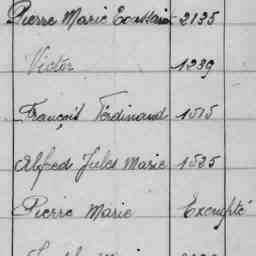 Pierre Marie Constant 2135
Victor 1239
François Ferdinand 1515
Alfred Jules Marie 1535
Pierre Marie Exempté